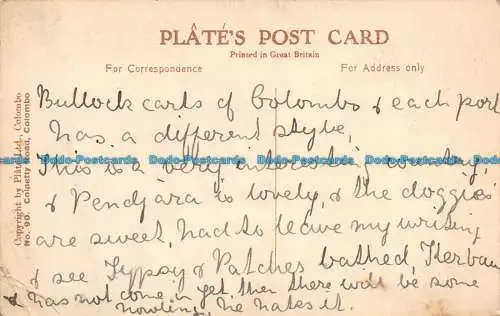 PLÂTÉ'S POST CARD
Printed in Great Britain
For Correspondence
For Address only
Copyright by Plâté Ltd., Colombo
No. 90. Colpetty Road, Colombo
Bullock carts of Colombo & each port
has a different style,
This is a very interesting country,
& Pendjara is lovely, & the doggies
are sweet, had to leave my writing
& see Gypsy & Patches bathed,
& has not come in yet then there will be some
howling, he hates it.
Dodo-Postcards Dodo-Postcards Dodo-Postcards Dodo-Postcards